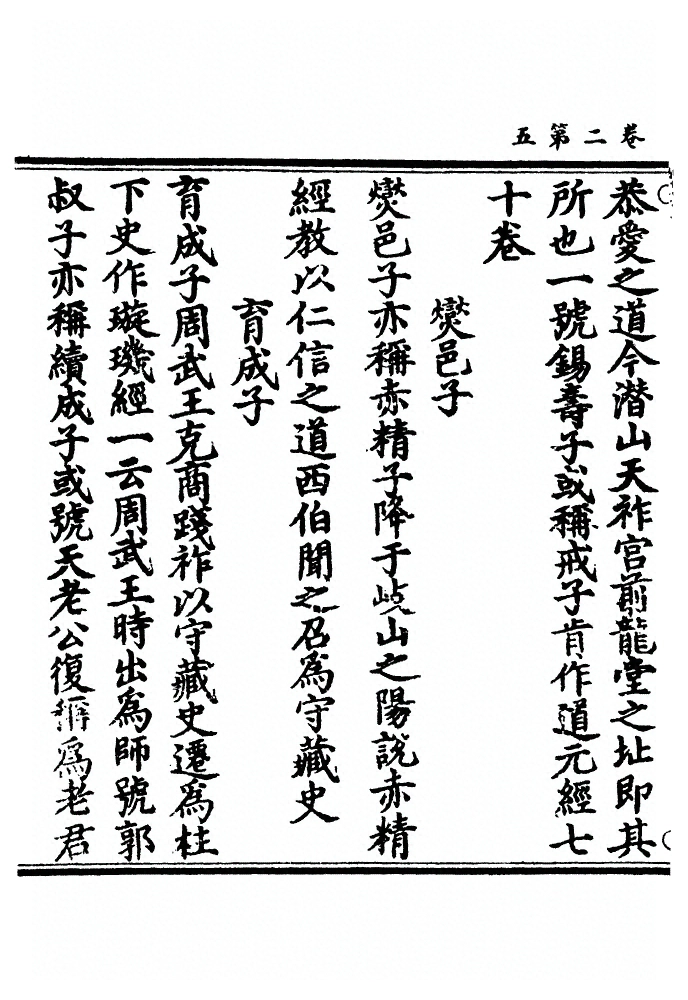 卷二第五
恭愛之道今潛山天祚宫前龍堂之址即其
所也一號錫壽子或稱戒子肯作道元經七
十卷
爕邑子
爕邑子亦稱赤精子降于嶢山之陽說赤精
經教以仁信之道西伯聞之召為守藏史
育成子
育成子周武王克商踐祚以守藏史遷為柱
下史作璇璣經一云周武王時出為師號郭
叔子亦稱續成子或號天老公復稱爲老君